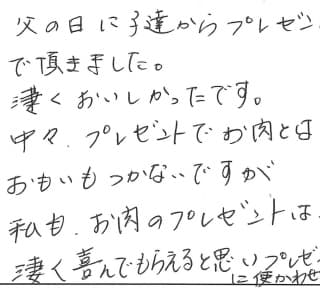 父の日に子達からプレゼン
で頂きました。
凄くおいしかったです。
中々、プレゼントでお肉とは
おもいもつかないですが
私も、お肉のプレゼントは、
凄く喜んでもらえると思いプレゼ
に使わせ